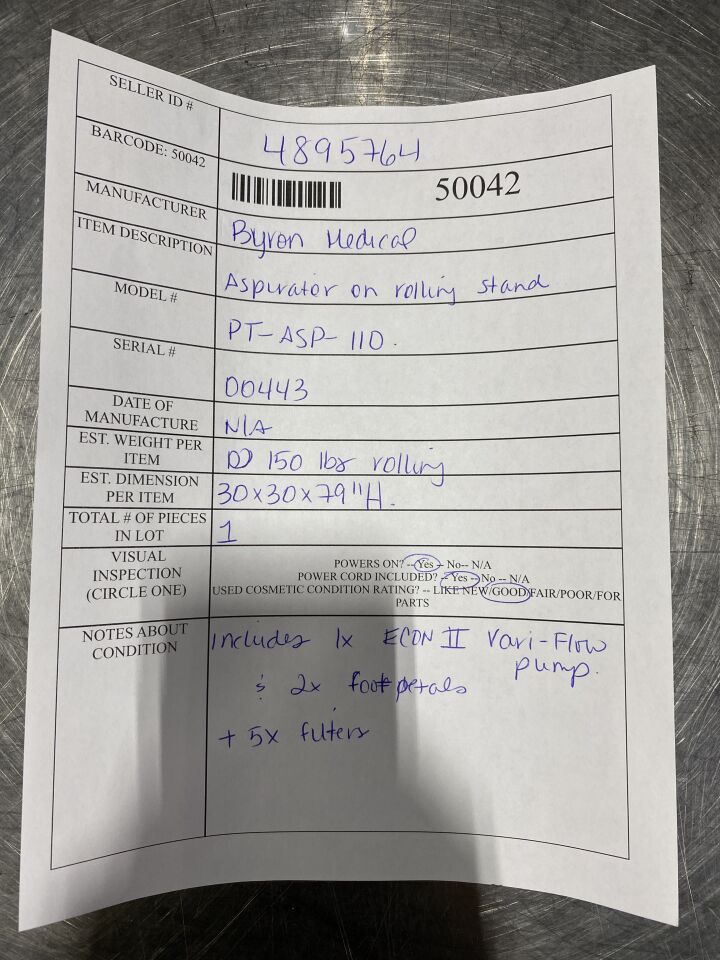 SELLER ID #
4895764
BARCODE: 50042
50042
MANUFACTURER
Byron Medical
ITEM DESCRIPTION
Aspirator on rolling stand
MODEL #
PT-ASP-110.
SERIAL #
00443
DATE OF
MANUFACTURE
N/A
EST. WEIGHT PER
ITEM
150 lbs rolling
EST. DIMENSION
PER ITEM
30x30x79"H.
TOTAL # OF PIECES
IN LOT
1
VISUAL
INSPECTION
(CIRCLE ONE)
POWERS ON? -- Yes -- No-- N/A
POWER CORD INCLUDED? -- Yes -- No -- N/A
USED COSMETIC CONDITION RATING? -- LIKE NEW/GOOD/FAIR/POOR/FOR
PARTS
NOTES ABOUT
CONDITION
Includes 1x ECON II Vari-Flow
pump.
& 2x foot petals
+ 5x filters